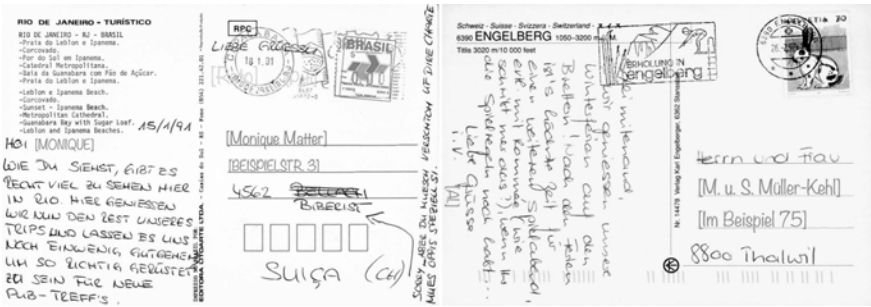 RIO DE JANEIRO - TURÍSTICO
RIO DE JANEIRO - RJ - BRASIL
-Praia do Leblon e Ipanema.
-Corcovado.
-Por do Sol em Ipanema.
-Catedral Metropolitana.
-Baía da Guanabara com Pão de Açúcar.
-Praia do Leblon e Ipanema.
-Leblon e Ipanema Beach.
-Corcovado.
-Sunset - Ipanema Beach.
-Metropolitan Cathedral.
-Guanabara Bay with Sugar Loaf.
-Leblon and Ipanema Beaches.
15/1/91
HOI [MONIQUE]
WIE DU SIEHST, GIBT ES
RECHT VIEL ZU SEHEN HIER
IN RIO. HIER GENIESSEN
WIR NUN DEN REST UNSERES
TRIPS UND LASSEN ES UNS
NOCH EINWENIG GUTGEHEN
UM SO RICHTIG GERÜSTET
ZU SEIN FÜR NEUE
PUB-TREFF'S.
EDITORA LITOARTE LTDA.
RPC
LIEBE GRÜESSLI
18.1.91
BRASIL
[Monique Matter]
[BEISPIELSTR. 3]
4562 BELLACH
BIBERIST
SUIÇA (CH)
SORRY ABER DU MUESCH VERSCHTOH UF DIRE CHARTE
MUES OPPIS SPEZIELL SI.
Schweiz - Suisse - Svizzera - Switzerland -
6390 ENGELBERG 1050-3200 m
Titlis 3020 m/10 000 feet
ERHOLUNG IN
engelberg
6390 ENGELBERG
HELVETIA 70
wir geniessen unsere
Winterferien auf den
Brettern. Nach den Ferien
ist's höchste Zeit für
einen weiteren Spielabend,
evtl. mit Rommée (wie
schreibt man das?), wenn Ihr
die Spielregeln noch habt...
Liebe Grüsse
[A.]
Nr. 14478 Verlag Karl Engelberger, 6362 Stansstad
Herrn und Frau
[M. u. S. Müller-Kehl]
[Im Beispiel 75]
8800 Thalwil